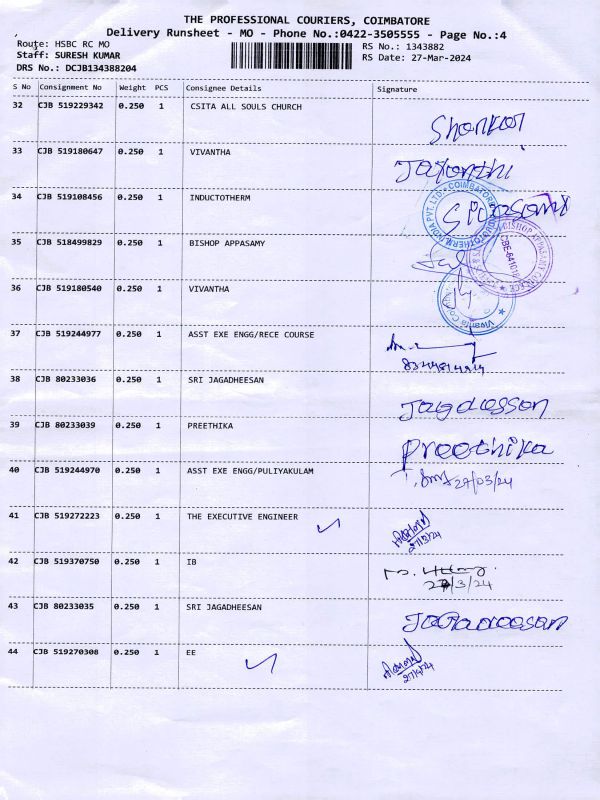 THE PROFESSIONAL COURIERS, COIMBATORE
Delivery Runsheet - MO - Phone No.:0422-3505555 - Page No.:4
Route: HSBC RC MO RS No.: 1343882
Staff: SURESH KUMAR RS Date: 27-Mar-2024
DRS No.: DCJB134388204
S No Consignment No Weight PCS Consignee Details Signature
32 CJB 519229342 0.250 1 CSITA ALL SOULS CHURCH
33 CJB 519180647 0.250 1 VIVANTHA Jayanthi
34 CJB 519108456 0.250 1 INDUCTOTHERM
35 CJB 518499829 0.250 1 BISHOP APPASAMY
36 CJB 519180540 0.250 1 VIVANTHA
37 CJB 519244977 0.250 1 ASST EXE ENGG/RECE COURSE
38 CJB 80233036 0.250 1 SRI JAGADHEESAN
39 CJB 80233039 0.250 1 PREETHIKA Preethika
40 CJB 519244970 0.250 1 ASST EXE ENGG/PULIYAKULAM 27/03/24
41 CJB 519272223 0.250 1 THE EXECUTIVE ENGINEER 27/3/24
42 CJB 519370750 0.250 1 IB 27/3/24
43 CJB 80233035 0.250 1 SRI JAGADHEESAN
44 CJB 519270308 0.250 1 EE